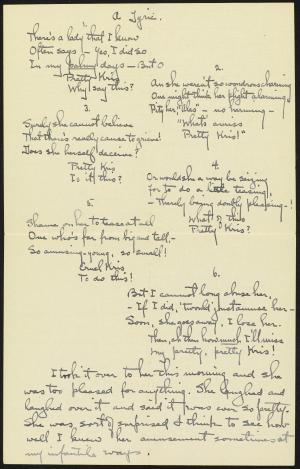 A Lyric.
There's a lady that I know
Often says "- Yes, I did so
In my days - But O
Pretty Kris
Why say this?
2.
An she weren't so wondrous charming
One might think her flight alarming
her, "Alas" - no harming -
"What's amiss
Pretty Kris!"
3.
Surely she cannot believe
That there's really cause to grieve!
Does she herself deceive?
Pretty Kris
Is it this?
4.
Or would she a way be seizing
for to do a little teasing,
- Thereby being doubly pleasing - !
What? of this
Pretty Kris?
5.
Shame on her to tease at all
One who's far from big and tall, -
So amusing - young, so small!
Cruel Kris,
To do this!
6.
But I cannot long abuse her,
- If I did, 'twould not amuse her -
Soon, she goes away, I lose her.
Then, oh then how much I'll miss
My pretty, pretty Kris!
I took it over to her this morning and she
was too pleased for anything. She laughed and
laughed over it and said it was ever so pretty.
She was sort of surprised I think to see how
well I knew her amusement sometimes at
my infantile ways.